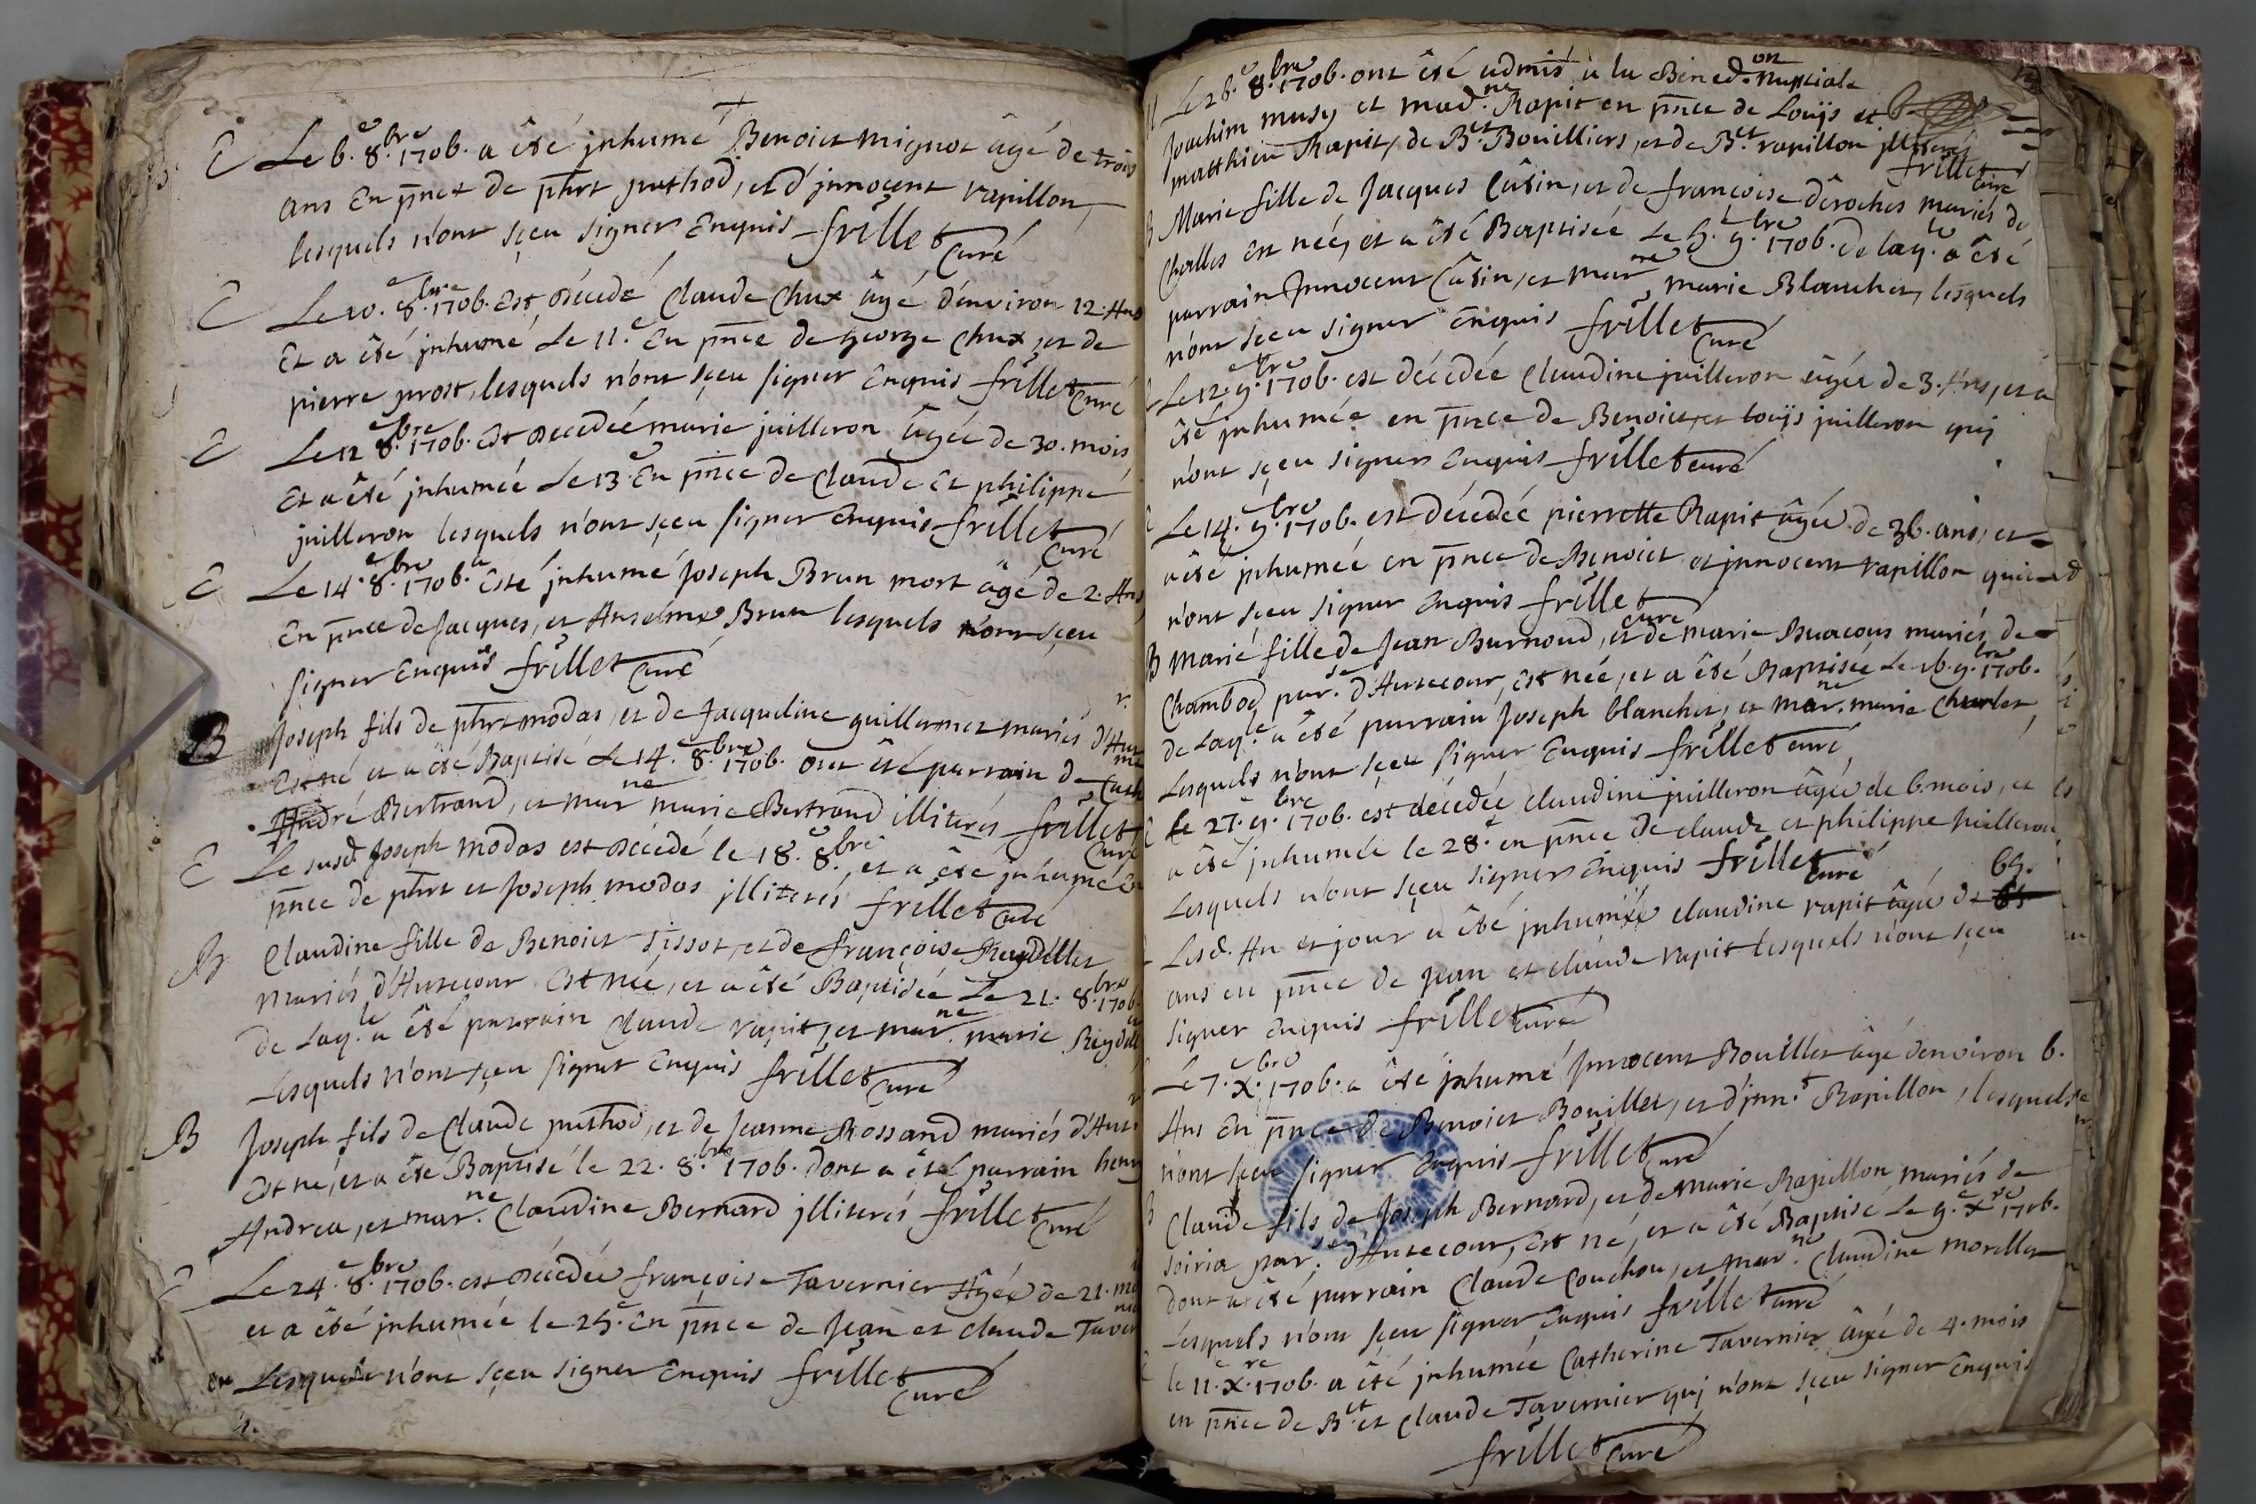 E Le 6.e 8.bre 1706. a êté jnhumé Benoict mignot âgé de trois
ans En p̄nce de phrt puthod, et d'jnnocent rapillon,
lesquels n'ont sçeu signer Enquis frillet Curé
E Le 10.e 8.bre 1706. Est décédé Claude Chux âgé d'environ 12. Ans
Et a êté jnhumé Le 11.e En p̄nce de george Chux, et de
pierre prost, lesquels n'ont sçeu signer Enquis frillet Curé
E Le 12e 8.bre 1706. Est décédée marie juilleron âgée de 30. mois
Et a êté jnhumée Le 13.e En p̄nce de Claude Et philippe
juilleron lesquels n'ont sçeu signer Enquis frillet Curé
E Le 14.e 8.bre 1706. a Esté jnhumé Joseph Brun mort âgé de 2. Ans
En p̄nce de Jacques, et Anselme Brun lesquels n'ont sçeu
signer Enquis frillet Curé
B Joseph fils de phrt modas, et de Jacqueline guillermet mariés d'Aut
Est né et a êté Baptisé Le 14.e 8.bre 1706. ont êté parrain de
André Bertrand, et mar.ne marie Bertrand illiterés frillet Curé
E Le susd. Joseph modas est décédé le 18.e 8.bre, et a êté jnhumé En
p̄nce de phrt et Joseph modas jlliterés frillet Curé
B Claudine fille de Benoict Tissot, et de françoise Reydellet
mariés d'Autecour Est née, et a êté Baptisée Le 21. 8.bre 1706.
de Laq.le a êté parrain Claude rapit, et mar.ne marie Reydell
Lesquels n'ont sçeu signer Enquis frillet Curé
B Joseph fils de Claude puthod, et de Jeanne Rossand mariés d'Aut
Est né, et a êté Baptisé le 22. 8.bre 1706. dont a êté parrain henry
Andrea, et mar.ne Claudine Bernard jlliterés frillet Curé
E Le 24.e 8.bre 1706. est décédée françoise Tavernier Agée de 21. mo
et a êté jnhumée le 25.e En p̄nce de Jean et Claude Taver
Lesquels n'ont sçeu signer Enquis frillet Curé
Le 26.e 8.bre 1706. ont êté admis à la Bined.on Nuptiale
Joachim musy et mad.ne Rapit en p̄nce de Louÿs et
matthieu Rapit, de B.et Bouilliers, et de B.et rapillon jlliterés
frillet Curé
B Marie fille de Jacques Cusin, et de françoise dêroches mariés de
Challes Est née, et a êté Baptisée Le 5.e 9.bre 1706. de laq.le a êté
parrain Jnnocent Cusin, et mar.ne marie Blanchet, lesquels
n'ont sçeu signer Enquis frillet Curé
Le 12.e 9.bre 1706. est décédée Claudine juilleron âgée de 3. Ans, et a
êté jnhumée en p̄nce de Benoict, et louÿs juilleron quj
n'ont sçeu signer Enquis frillet curé
Le 14.e 9.bre 1706. est décédée pierrette Rapit âgée de 36. ans, et
a êté jnhumée en p̄nce de Benoict et jnnocent rapillon qui
n'ont sçeu signer Enquis frillet Curé
B Marie fille de Jean Burnoud, et de marie Buacous mariés de
Chambod par.se d'Autecour, Est née, et a êté Baptisée Le 16. 9.bre 1706.
de Laq.le a êté parrain Joseph blanchet, et mar.ne marie Charlet
Lesquels n'ont sçeu signer Enquis frillet curé
Le 27.e 9.bre 1706. est décédée claudine juilleron âgée de 6. mois, et
a êté jnhumée le 28.e en p̄nce de claude et philippe juilleron
Lesquels n'ont sçeu signer Enquis frillet curé
Lesd. An et jour a êté jnhumée claudine rapit âgée de 65.
ans en p̄nce de Jean et claude rapit lesquels n'ont sçeu
signer Enquis frillet curé
Le 7.e X.bre 1706. a êté jnhumé Jnnocent Bouillet âgé d'environ 6.
Ans En p̄nce de Benoict Bouillet, et d'jnn.t Rapillon, lesquels
n'ont sçeu signer Enquis frillet curé
B Claude fils de Joseph Bernard, et de Marie Rapillon mariés de
soiria par.se d'Autecour, Est né, et a êté Baptisé Le 9.e X.re 1706.
dont a êté parrain Claude Couchou, et mar.ne Claudine morellet
Lesquels n'ont sçeu signer Enquis frillet curé
le 11.e X.re 1706. a êté jnhumée Catherine Tavernier âgée de 4. mois
en p̄nce de B.et et Claude Tavernier quj n'ont sçeu signer Enquis
frillet Curé